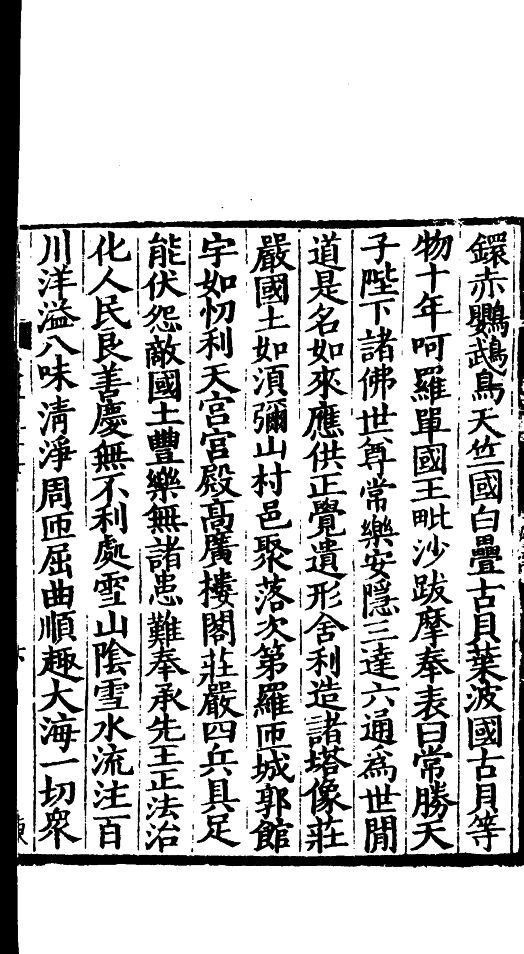 鐶赤鸚鵡鳥天竺國白疊古貝葉波國古貝等
物十年呵羅單國王毗沙跋摩奉表曰常勝天
子陛下諸佛世尊常樂安隱三達六通爲世閒
道是名如來應供正覺遺形舍利造諸塔像莊
嚴國土如湏彌山村邑聚落次第羅匝城郭館
宇如忉利天宮宮殿高廣樓閣莊嚴四兵具足
能伏怨敵國土豐樂無諸患難奉承先王正法治
化人民良善慶無不利處雪山陰雪水流注百
川洋溢八味清淨周匝屈曲順趣大海一切衆